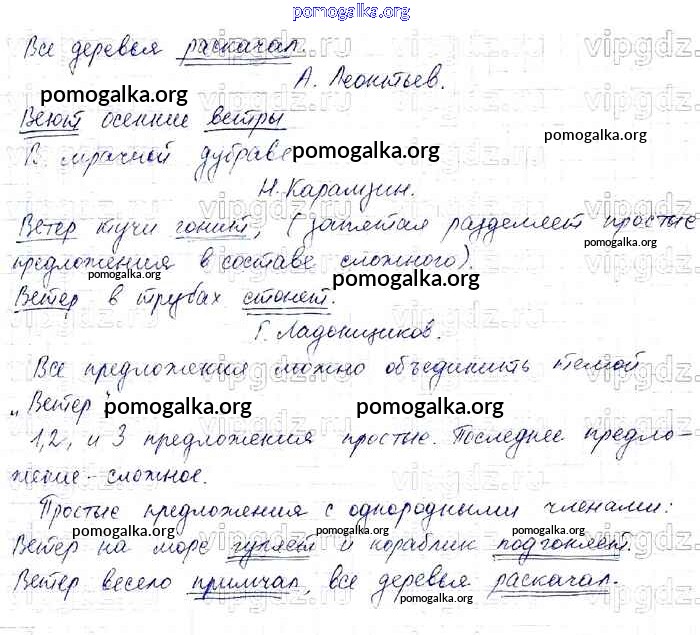 pomogalka.org
Все деревья раскачал.
А. Леонтьев.
pomogalka.org
Веют осенние ветры
pomogalka.org
В мрачной дубраве
pomogalka.org
Н. Карамзин.
Ветер тучи гонит, (запятая разделяет простые
предложения в составе сложного).
pomogalka.org
pomogalka.org
Ветер в трубах стонет.
pomogalka.org
Г. Ладонщиков.
Все предложения можно объединить темой
„Ветер"
pomogalka.org
pomogalka.org
1,2, и 3 предложения простые. Последнее предло-
жение - сложное.
Простые предложения с однородными членами:
pomogalka.org
pomogalka.org
pomogalka.org
Ветер на море гуляет и кораблик подгоняет.
Ветер весело примчал, все деревья раскачал.
pomogalka.org
pomogalka.org
vipgdz.ru